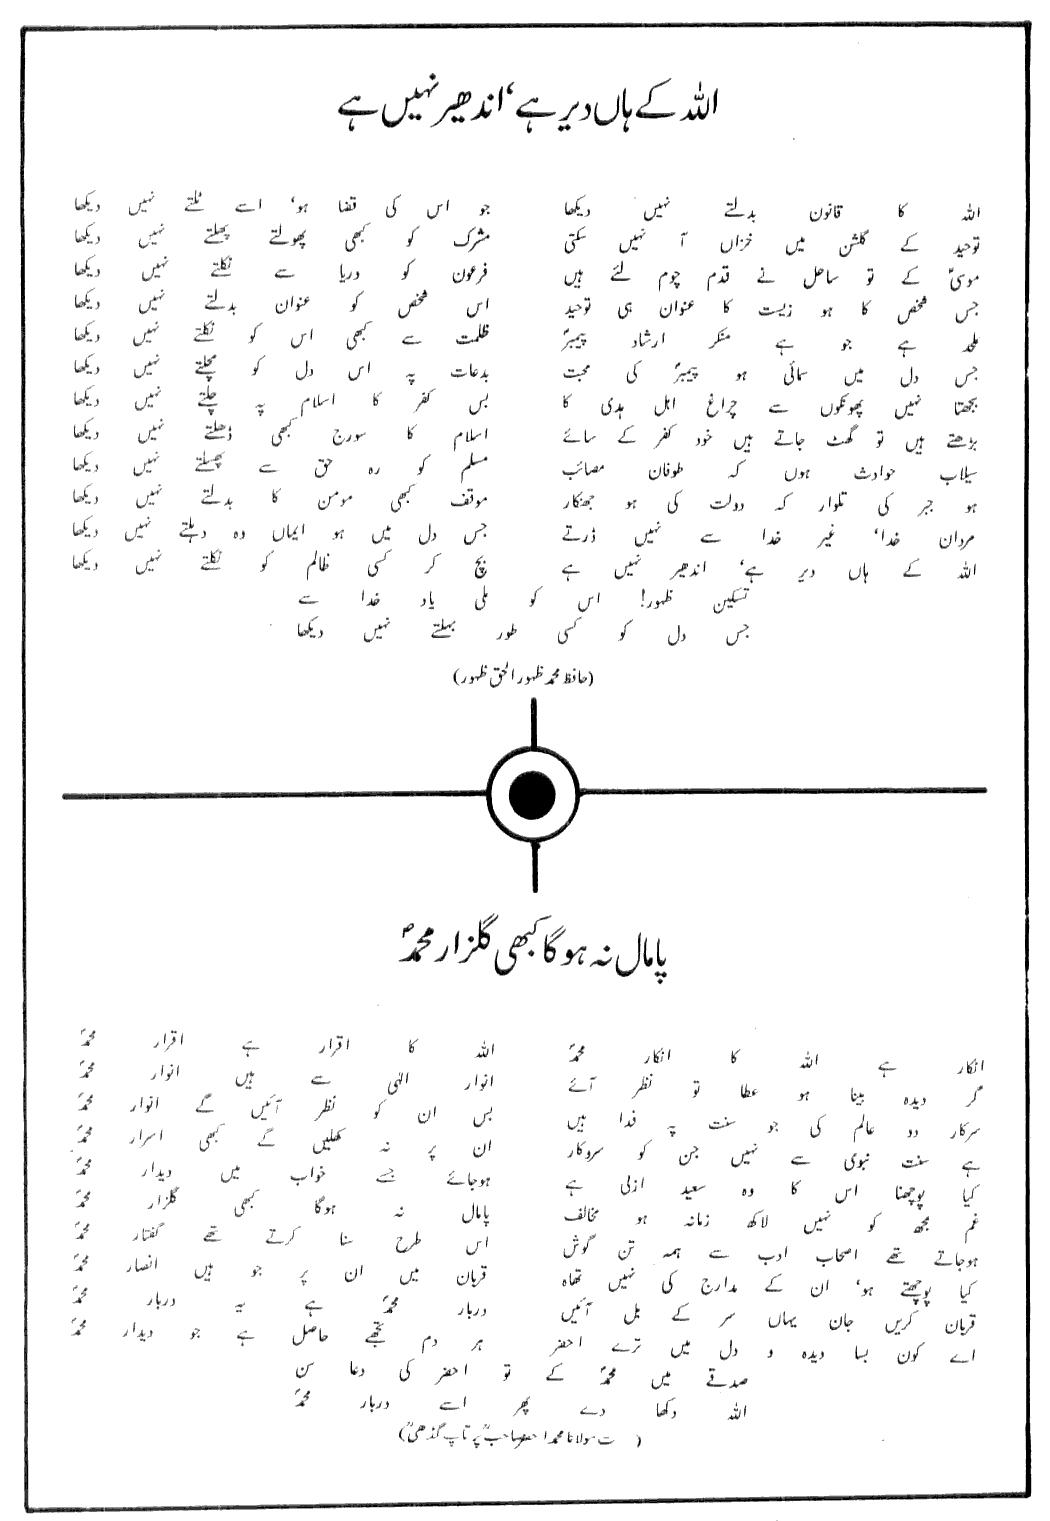 اللہ کے ہاں دیر ہے‘ اندھیر نہیں ہے
اللہ کا قانون بدلتے نہیں دیکھا
جو اس کی قضا ہو‘ اسے ٹلتے نہیں دیکھا
توحید کے گلشن میں خزاں آ نہیں سکتی
مشرک کو کبھی پھولتے پھلتے نہیں دیکھا
موسیٰؑ کے تو ساحل نے قدم چوم لئے ہیں
فرعون کو دریا سے نکلتے نہیں دیکھا
جس شخص کا ہو زیست کا عنوان ہی توحید
اس شخص کو عنوان بدلتے نہیں دیکھا
ملحد ہے جو ہے منکر ارشاد پیمبرؐ
ظلمت سے کبھی اس کو نکلتے نہیں دیکھا
جس دل میں سمائی ہو پیمبرؐ کی محبت
بدعات پہ اس دل کو مچلتے نہیں دیکھا
بجھتا نہیں پھونکوں سے چراغ اہل ہدی کا
بس کفر کا اسلام پہ چلتے نہیں دیکھا
بڑھتے ہیں تو گھٹ جاتے ہیں خود کفر کے سائے
اسلام کا سورج کبھی ڈھلتے نہیں دیکھا
سیلاب حوادث ہوں کہ طوفان مصائب
مسلم کو رہ حق سے پھسلتے نہیں دیکھا
ہو جبر کی تلوار کہ دولت کی ہو جھنکار
موقف کبھی مومن کا بدلتے نہیں دیکھا
مردان خدا‘ غیر خدا سے نہیں ڈرتے
جس دل میں ہو ایماں وہ دہلتے نہیں دیکھا
اللہ کے ہاں دیر ہے‘ اندھیر نہیں ہے
بچ کر کسی ظالم کو نکلتے نہیں دیکھا
تسکین ظہور! اس کو ملی یاد خدا سے
جس دل کو کسی طور بہلتے نہیں دیکھا
(حافظ محمد ظہور الحق ظہور)
پامال نہ ہوگا کبھی گلزار محمدؐ
انکار ہے اللہ کا انکار محمدؐ
اللہ کا اقرار ہے اقرار محمدؐ
گر دیدہ بینا ہو عطا تو نظر آئے
انوار الٰہی سے ہیں انوار محمدؐ
سرکار دو عالم کی جو سنت پہ فدا ہیں
بس ان کو نظر آئیں گے انوار محمدؐ
ہے سنت نبوی سے نہیں جن کو سروکار
ان پر نہ کھلیں گے کبھی اسرار محمدؐ
کیا پوچھنا اس کا وہ سعید ازلی ہے
ہوجائے جسے خواب میں دیدار محمدؐ
غم مجھ کو نہیں لاکھ زمانہ ہو مخالف
پامال نہ ہوگا کبھی گلزار محمدؐ
ہوجاتے تھے اصحاب ادب سے ہمہ تن گوش
اس طرح سنا کرتے تھے گفتار محمدؐ
کیا پوچھتے ہو‘ ان کے مدارج کی نہیں تھاہ
قربان میں ان پر جو ہیں انصار محمدؐ
قربان کریں جان یہاں سر کے بل آئیں
دربار محمدؐ ہے یہ دربار محمدؐ
اے کون بسا دیدہ و دل میں ترے احقر
ہر دم تجھے حاصل ہے جو دیدار محمدؐ
صدقے میں محمدؐ کے تو احقر کی دعا سن
اللہ دکھا دے پھر اسے دربار محمدؐ
(ت مولانا محمد احمد صاحبؒ پرتاپ گڈھیؒ)